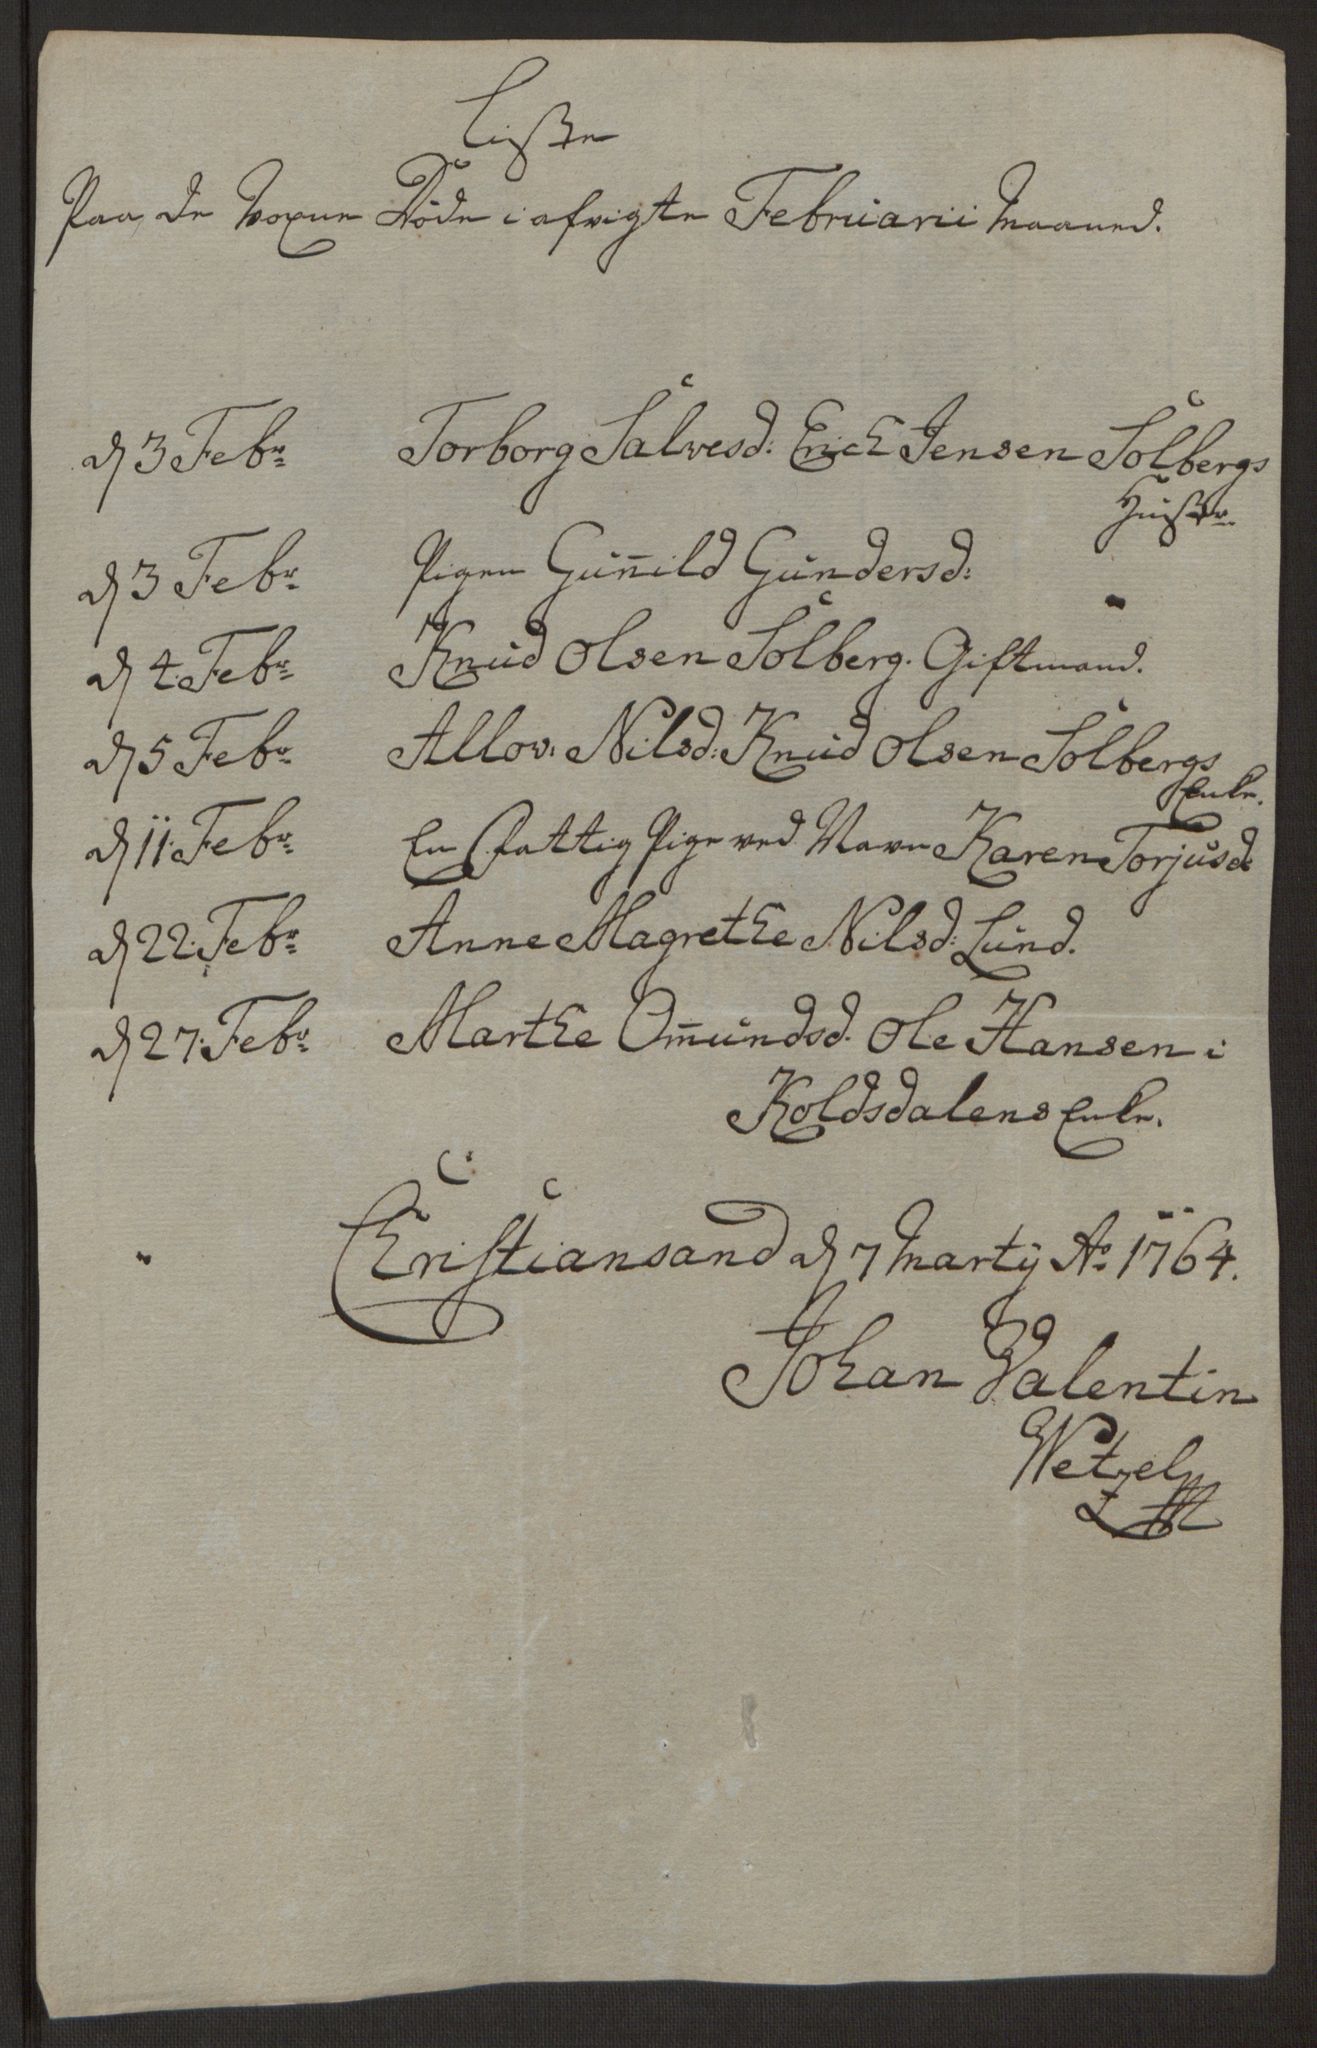 Liste
Paa de voxne Døde i afvigte Februarii Maaned.
d 3 Febr. Torborg Salvesd: Erich Jensen Solbergs
Hustr.
d 3 Febr. Pigen Gun̄ild Gundersd:
d 4. Febr. Knud Olsen Solberg. Giftmand.
d 5 Febr. Allov: Nilsd: Knud Olsen Solbergs
Enke.
d 11. Febr. En fattig Pige ved Navn Karen Torjusd:
d 22. Febr. Anne Magrethe Nilsd: Lund.
d 27. Febr. Marthe Om̄undsd. Ole Hansen i
Koldsdalens Enke.
Christiansand d 7 Martij Ao 1764.
Johan Valentin
Wetzel